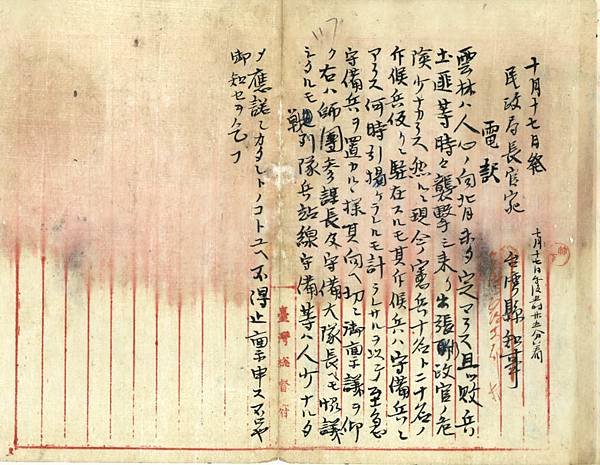 十月十七日発
民政局長官宛
十月十七日午後五時廿五分着
電訳
縣知事
雲林ハ人心ノ向背未タ定マラス且ツ敗兵
土匪等時々襲撃ニ来リ出張 政官ノ危
険少ナカラス然ルニ現今憲兵十名ト二十名ノ
斥候兵仮リニ駐在スルモ其斥候兵ハ守備兵ニ
アラス何時引揚ケラルヽモ計ラレサルヲ以テ至急
守備兵ヲ置カルヽ様其向ヘ切ニ御稟議ヲ仰
ク右ハ師團参謀長及守備大隊長ヘモ照議
シタルモ戦列隊兵站線守備等ハ人少ナルタ
メ應諾シカタシトノコトユヘ不得止稟申ス
御知セヲ乞フ
臺灣総督府